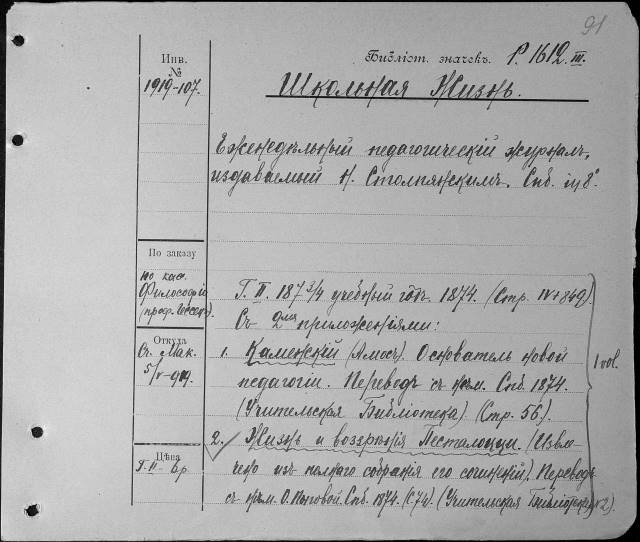 91
Инв. №
1919-107.
Библіот. значекъ. P. 1612. III.
Школьная Жизнь.
Еженедѣльный педагогическій журналъ,
издаваемый Н. Столпянскимъ. Спб. in 8°.
По заказу
по каѳ.
Философіи
(проф. Гессенъ).
Откуда
Ст. Мак.
5/V-919.
Цѣна
Т. II. - 6р.
Г. II. 187 3/4 учебный годъ. 1874. (Стр. IV+849).
Съ 2мя приложеніями:
1. Каменскій (Амосъ). Основатель новой
педагогіи. Переводъ съ нѣм. Спб. 1874.
(Учительская Библіотека) (Стр. 56).
2. Жизнь и воззрѣнія Песталоцци (Извле-
чено изъ полнаго собранія его сочиненій). Переводъ
съ нѣм. О. Спб. 1874. (С. 74). (Учительская Библіотека, №2).
1 vol.